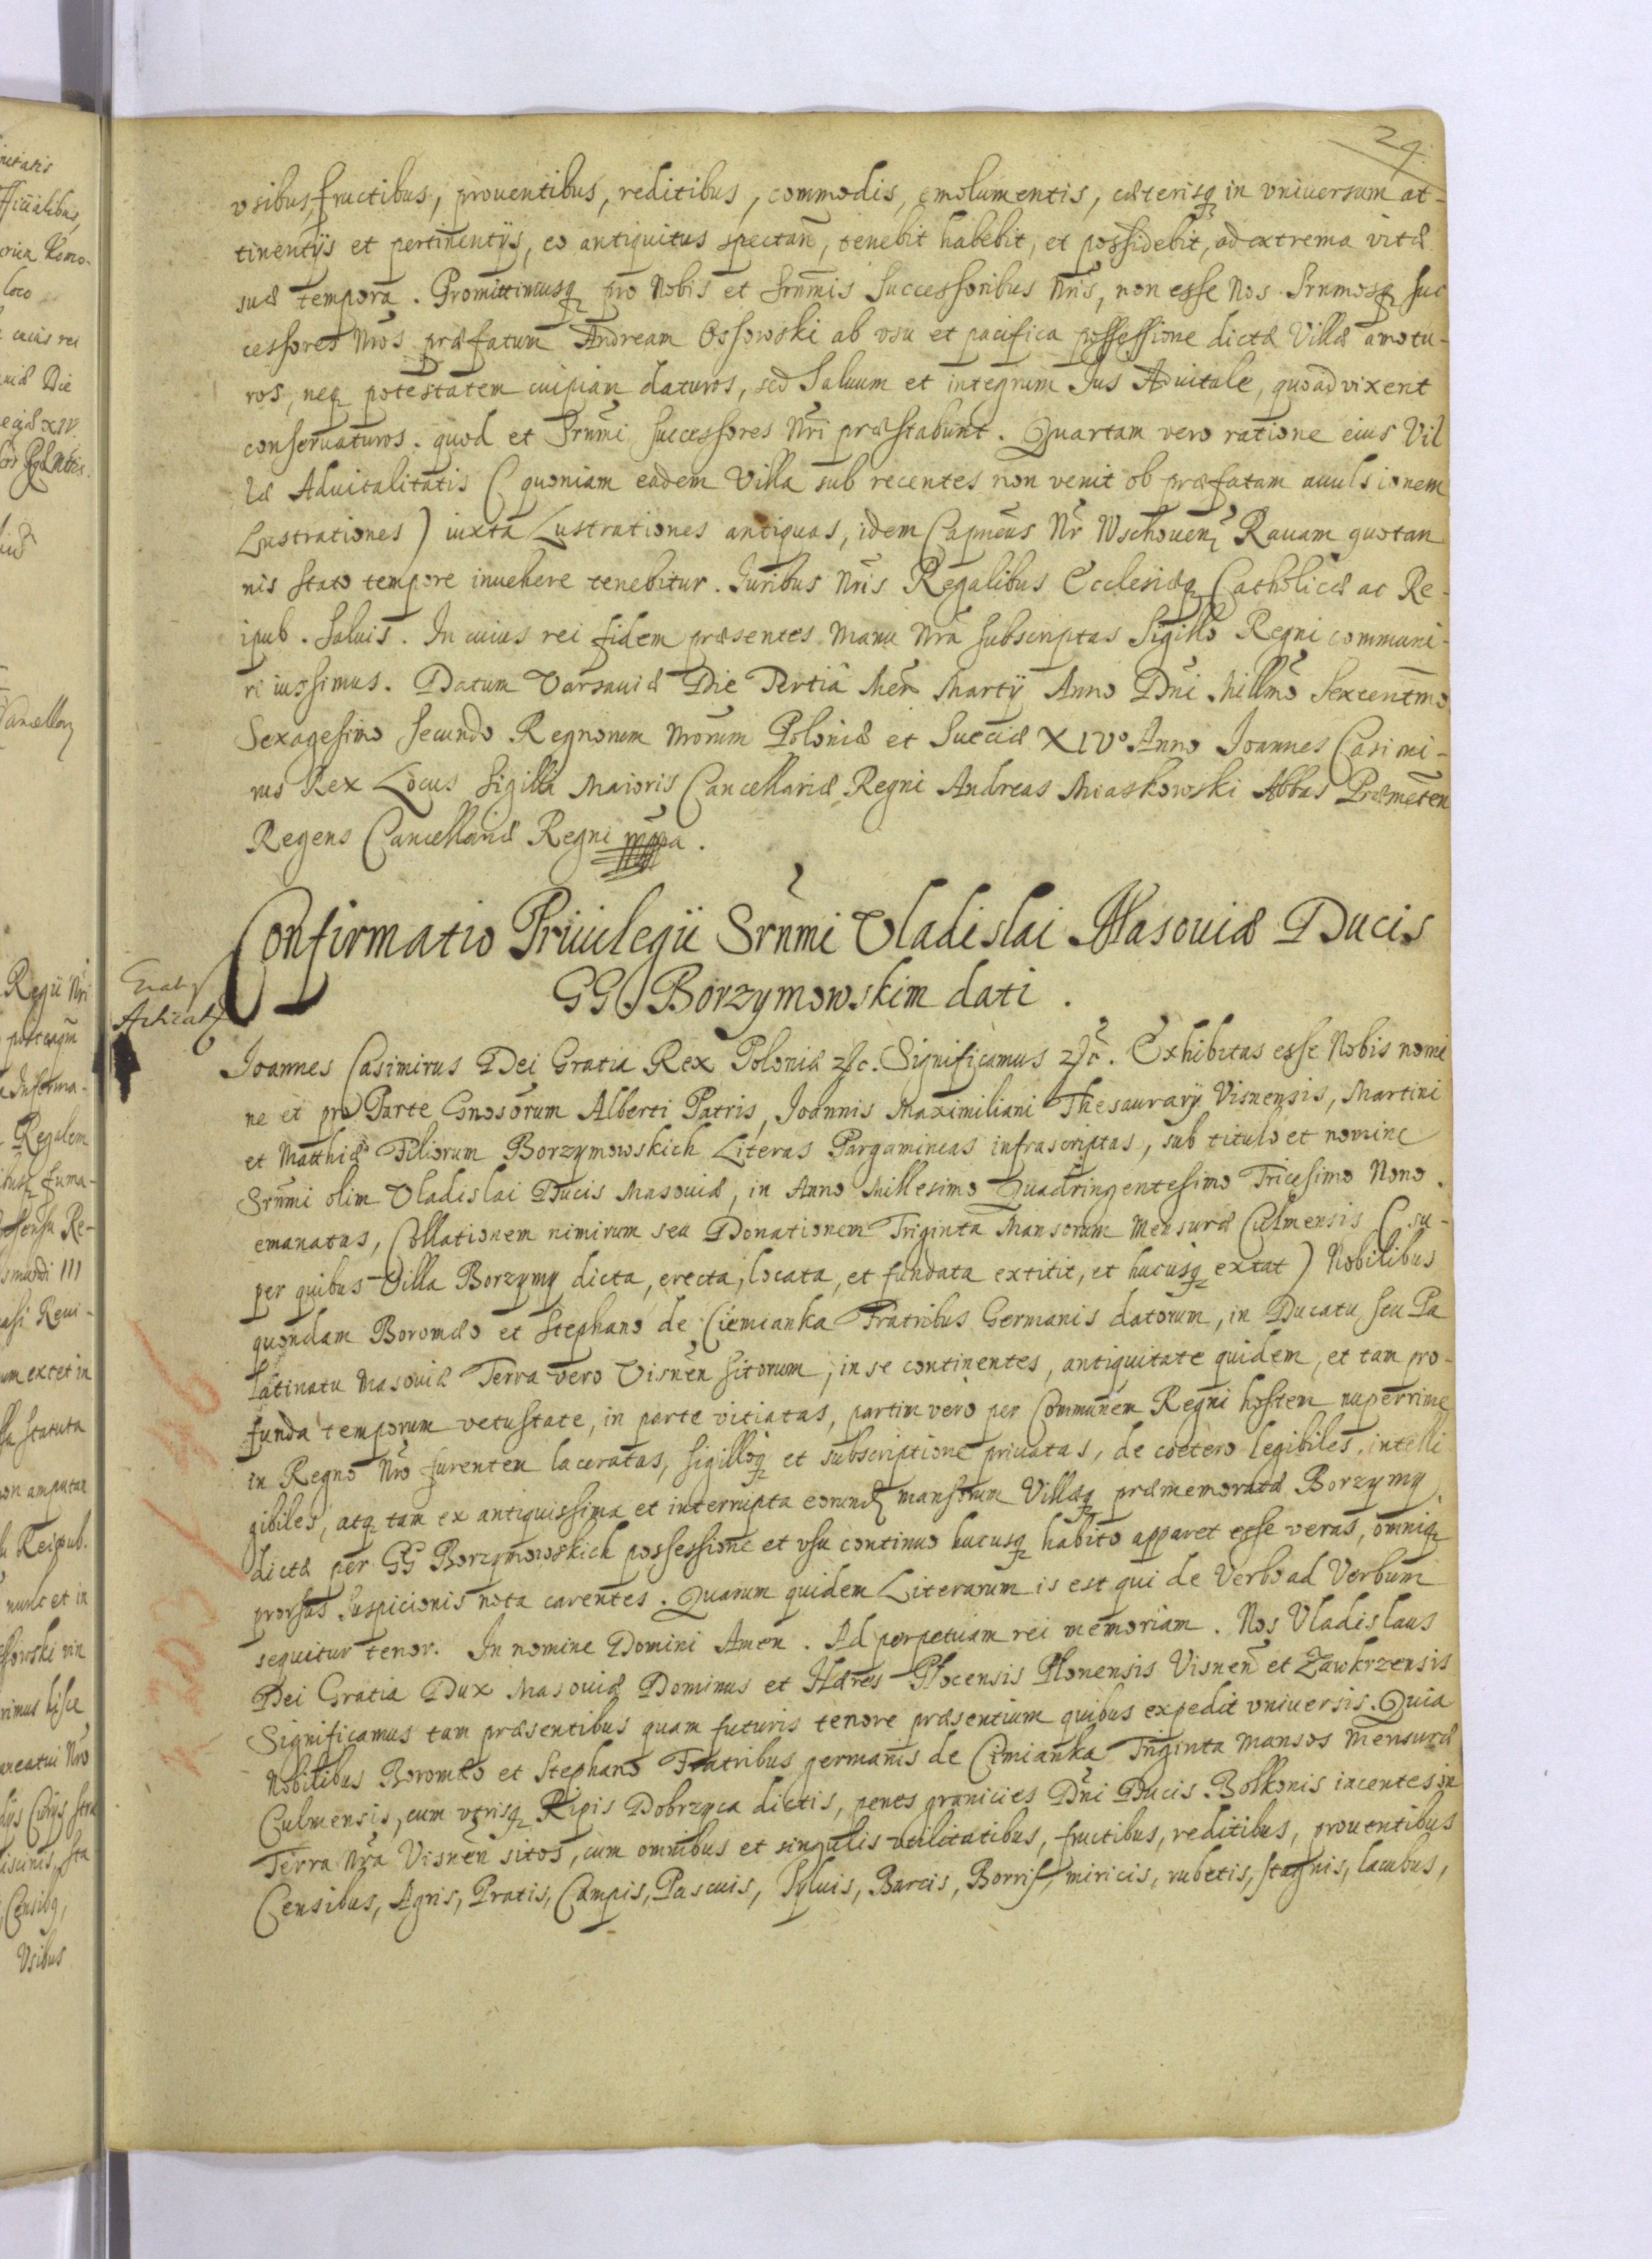 29
vsibus, fructibus, prouentibus, reditibus, commodis, emolumentis, cæterisq in vniuersum at-
tinentÿs et pertinentÿs, eo antiquitus spectan̄, tenebit habebit, et possidebit, ad extrema vitæ
suæ tempora. Promittimusq pro Nobis et Srnmis Successoribus Nris, non esse Nos Srnmosq Suc
cessores Nros præfatum Andream Ossowski ab vsu et pacifica possessione dictæ Villæ amotu-
ros, neq potestatem cuipiam daturos, sed Saluum et integrum Ius Aduitale, quoad vixerit
conseruaturos. quod et Srnmi Successores Nri præstabunt. Quartam vero ratione eius Vil
læ Aduitalitatis (quoniam eadem Villa sub recentes non venit ob præfatam auulsionem
Lustrationes) iuxta Lustrationes antiquas, idem Capneus Nr Wschouen Rauam quotan
nis stato tempore inuehere tenebitur. Iuribus Nris Regalibus Ecclesiæq Catholicæ ac Re-
ipub. saluis. In cuius rei fidem præsentes Manu Nra subscriptas Sigillo Regni communi-
ri iussimus. Datum Varsauiæ Die Tertia Men Martÿ Anno Dni Millmo Sexcentmo
Sexagesimo Secundo Regnorum Nrorum Poloniæ et Sueciæ XIVo Anno Ioannes Casimi-
rus Rex Locus Sigilli Maioris Cancellariæ Regni Andreas Miaskowski Abbas Præmeten
Regens Cancellariæ Regni mppa.
Confirmatio Priuilegii Srnmi Vladislai Masouiæ Ducis
GG Borzymowskim dati.
Ioannes Casimirus Dei Gratia Rex Poloniæ &c. Significamus &c. Exhibitas esse Nobis nomi
ne et pro Parte Gnosorum Alberti Patris, Ioannis Maximiliani Thesaurarÿ Visnensis, Martini
et Matthiæ Filiorum Borzymowskich Literas Pargamineas infrascriptas, sub titulo et nomine
Srnmi olim Vladislai Ducis Masouiæ, in Anno Millesimo Quadringentesimo Tricesimo Nono.
emanatas, Collationem nimirum seu Donationem Triginta Mansorum Mensuræ Culmensis (su-
per quibus Villa Borzymy dicta, erecta, locata, et fundata extitit, et hucusq extat) Nobilibus
quondam Boromæo et Stephano de Ciemianka Fratribus Germanis datorum, in Ducatu seu Pa
latinatu Masouiæ Terra vero Visnen sitorum, in se continentes, antiquitate quidem, et tam pro-
funda temporum vetustate, in parte vitiatas, partim vero per Communem Regni hostem nuperrime
in Regno Nro furentem laceratas, Sigilloq et subscriptione priuatas, de coetero legibiles, intelli
gibiles, atq tam ex antiquissima et interrupta eorund mansorum Villæq præmemoratæ Borzymy
dictæ per GG Borzymowskich possessione et vsu continuo hucusq habito apparet esse veras, omniq
prorsus suspicionis nota carentes. Quarum quidem Literarum is est qui de Verbo ad Verbum
sequitur tenor. In nomine Domini Amen. Ad perpetuam rei memoriam. Nos Vladislaus
Dei Gratia Dux Masouiæ Dominus et Hæres Plocensis Plonensis Visnen et Zawkrzensis
Significamus tam præsentibus quam futuris tenore præsentium quibus expedit vniuersis. Quia
Nobilibus Boromeo et Stephano Fratribus germanis de Cimianka Triginta Mansos Mensuræ
Culmensis, cum vtrisq Ripis Dobrzyca dictis, penes granicies Dni Ducis Bolkonis iacentes in
Terra Nra Visnen sitos, cum omnibus et singulis vtilitatibus, fructibus, reditibus, prouentibus
Censibus, Agris, Pratis, Campis, Pascuis, Syluis, Barcis, Borris, miricis, rubetis, stagnis, lacubus,